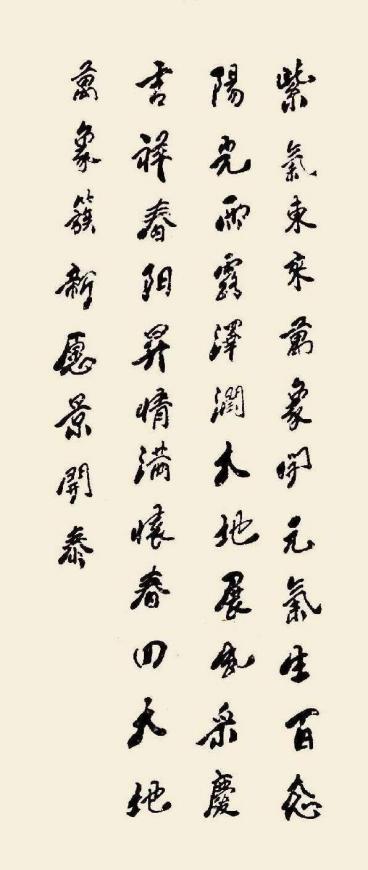 紫氣東來萬象開元氣生百态
陽光雨露澤潤大地展風采慶
吉祥春阳昇情滿懷春回大地
萬象簇新愿景開泰